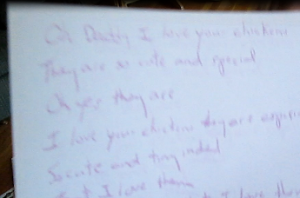 Oh Daddy I love your chickens
They are so cute and special
Oh yes they are
I love your chickens they are
So cute and tiny indeed
I love them
I love